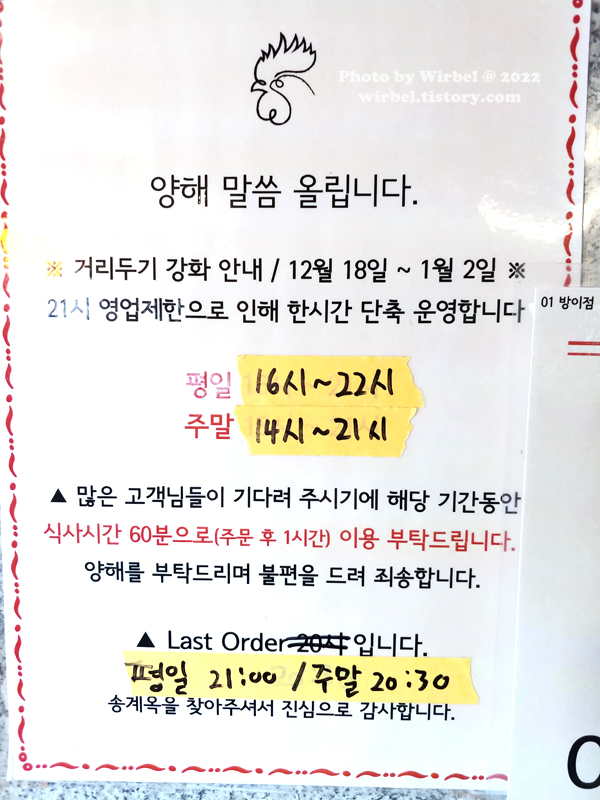 Photo by Wirbel @ 2022
wirbel.tistory.com
양해 말씀 올립니다.
※ 거리두기 강화 안내 / 12월 18일 ~ 1월 2일 ※
21시 영업제한으로 인해 한시간 단축 운영합니다
01 방이점
평일 16시~22시
주말 14시~21시
▲ 많은 고객님들이 기다려 주시기에 해당 기간동안
식사시간 60분으로(주문 후 1시간) 이용 부탁드립니다.
양해를 부탁드리며 불편을 드려 죄송합니다.
▲ Last Order 20시 입니다.
평일 21:00 / 주말 20:30
송계옥을 찾아주셔서 진심으로 감사합니다.